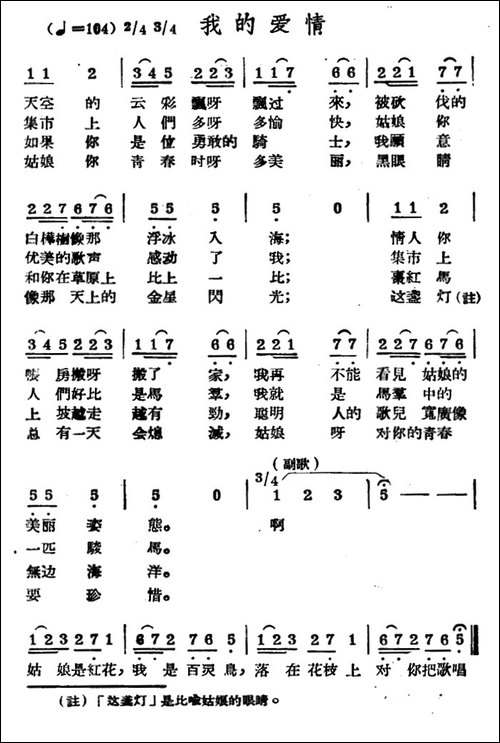 (♩=104) 2/4 3/4 我的爱情
1 1 2 | 3 4 5 2 2 3 | 1 1 7 6 6 | 2 2 1 7 7 |
天空 的 云彩 飄呀 飄过 來，被砍 伐的
集市 上 人們 多呀 多愉 快，姑娘 你
如果 你 是位 勇敢的 騎 士，我願 意
姑娘 你 青春 时呀 多美 丽，黑眼 睛
2 2 7 6 7 6 | 5 5 5 | 5 0 | 1 1 2 |
白樺樹像那 浮冰 入 海； 情人 你
优美的歌声 感动 了 我； 集市 上
和你在草原上 比上 一 比； 棗紅 馬
像那 天上的 金星 閃 光； 这盞 灯（註）
3 4 5 2 2 3 | 1 1 7 6 6 | 2 2 1 7 7 | 2 2 7 6 7 6 |
帳 房搬呀 搬了 家，我再 不能 看見 姑娘的
人 們好比 是馬 羣，我就 是 馬羣 中的
上 坡越走 越有 勁，聰明 人的 歌兒 寬廣像
总 有一天 会熄 滅，姑娘 呀 对你的青春
（副歌）
5 5 5 | 5 0 | 3/4 1 2 3 | 5 — — |
美丽 姿 態。 啊
一匹 駿 馬。
無边 海 洋。
要 珍 惜。
1 2 3 2 7 1 | 6 7 2 7 6 5 | 1 2 3 2 2 1 | 6 7 2 7 6 5 ‖
姑 娘是紅花，我 是 百灵 鳥，落 在 花枝 上 对 你把歌唱
（註）「这盞灯」是比喩姑娘的眼睛。